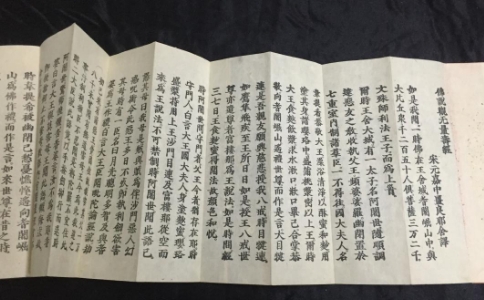 佛説觀無量壽經
宋元嘉中畺良耶舍譯
如是我聞一時佛在王舍城耆闍崛山中與
大比丘衆千二百五十人俱菩薩三萬二千
文殊師利法王子而爲上首
爾時王舍大城有一太子名阿闍世隨順調
達惡友之教收執父王頻婆娑羅幽閉置於
七重室内制諸羣臣一不得往國大夫人名
韋提希恭敬大王澡浴清淨以酥蜜和麨用
塗其身諸瓔珞中盛蒲桃漿密以上王爾時
大王食麨飲漿求水漱口漱口畢已合掌恭
敬向耆闍崛山遙禮世尊而作是言大目犍
連是吾親友願興慈悲授我八戒時目犍連
如鷹隼飛疾至王所日日如是授王八戒世
尊亦遣尊者富樓那爲王説法如是時間經
三七日食麨蜜得聞法故顔色和悦
時阿闍世問守門者父王今者猶存在耶時
守門人白言大王國大夫人身塗麨蜜瓔珞
盛漿持用上王沙門目連及富樓那從空而
來爲王説法不可禁制時阿闍世聞此語已
怒其母曰我母是賊與賊爲伴沙門惡人幻
惑呪術令此惡王多日不死即執利劒欲害
其母時有一臣名曰月光聰明多智及與耆
婆爲王作禮白言大王臣聞毗陀論經説劫
時韋提希被幽閉已愁憂憔悴遙向耆闍崛
山爲佛作禮而作是言如來世尊在昔之時